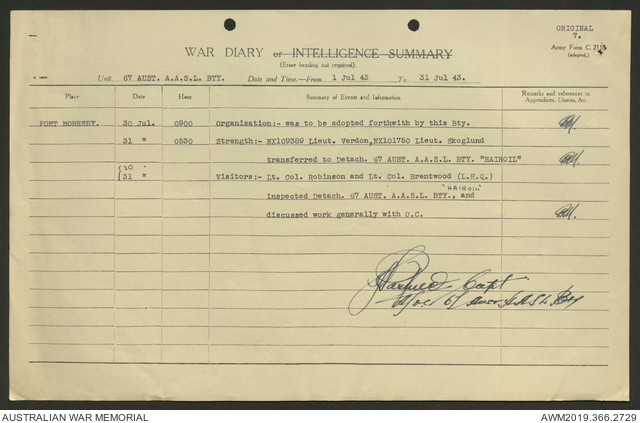 ORIGINAL
7.
WAR DIARY or INTELLIGENCE SUMMARY
Army Form C.
(adapted.)
(Erase heading not required).
Unit 67 AUST. A.A.S.L. BTY. Date and Time.—From 1 Jul 43 To 31 Jul 43.
Place Date Hour Summary of Events and Information Remarks and references in Appendices, Diaries, &c.
PORT MORESBY. 30 Jul. 0900 Organisation:- was to be adopted forthwith by this Bty.
31 " 0530 Strength:- NX109389 Lieut. Verdon,NX101750 Lieut. Skoglund
transferred to Detach. 67 AUST. A.A.S.L. BTY. "HAIROIL"
(30
(31 " Visitors:- Lt. Col. Robinson and Lt. Col. Brentwood (L.H.Q.)
"HAIROIL"
inspected Detach. 67 AUST. A.A.S.L. BTY., and
discussed work generally with O.C.
Capt
67 Aust A.A.S.L. Bty
AUSTRALIAN WAR MEMORIAL AWM2019.366.2729